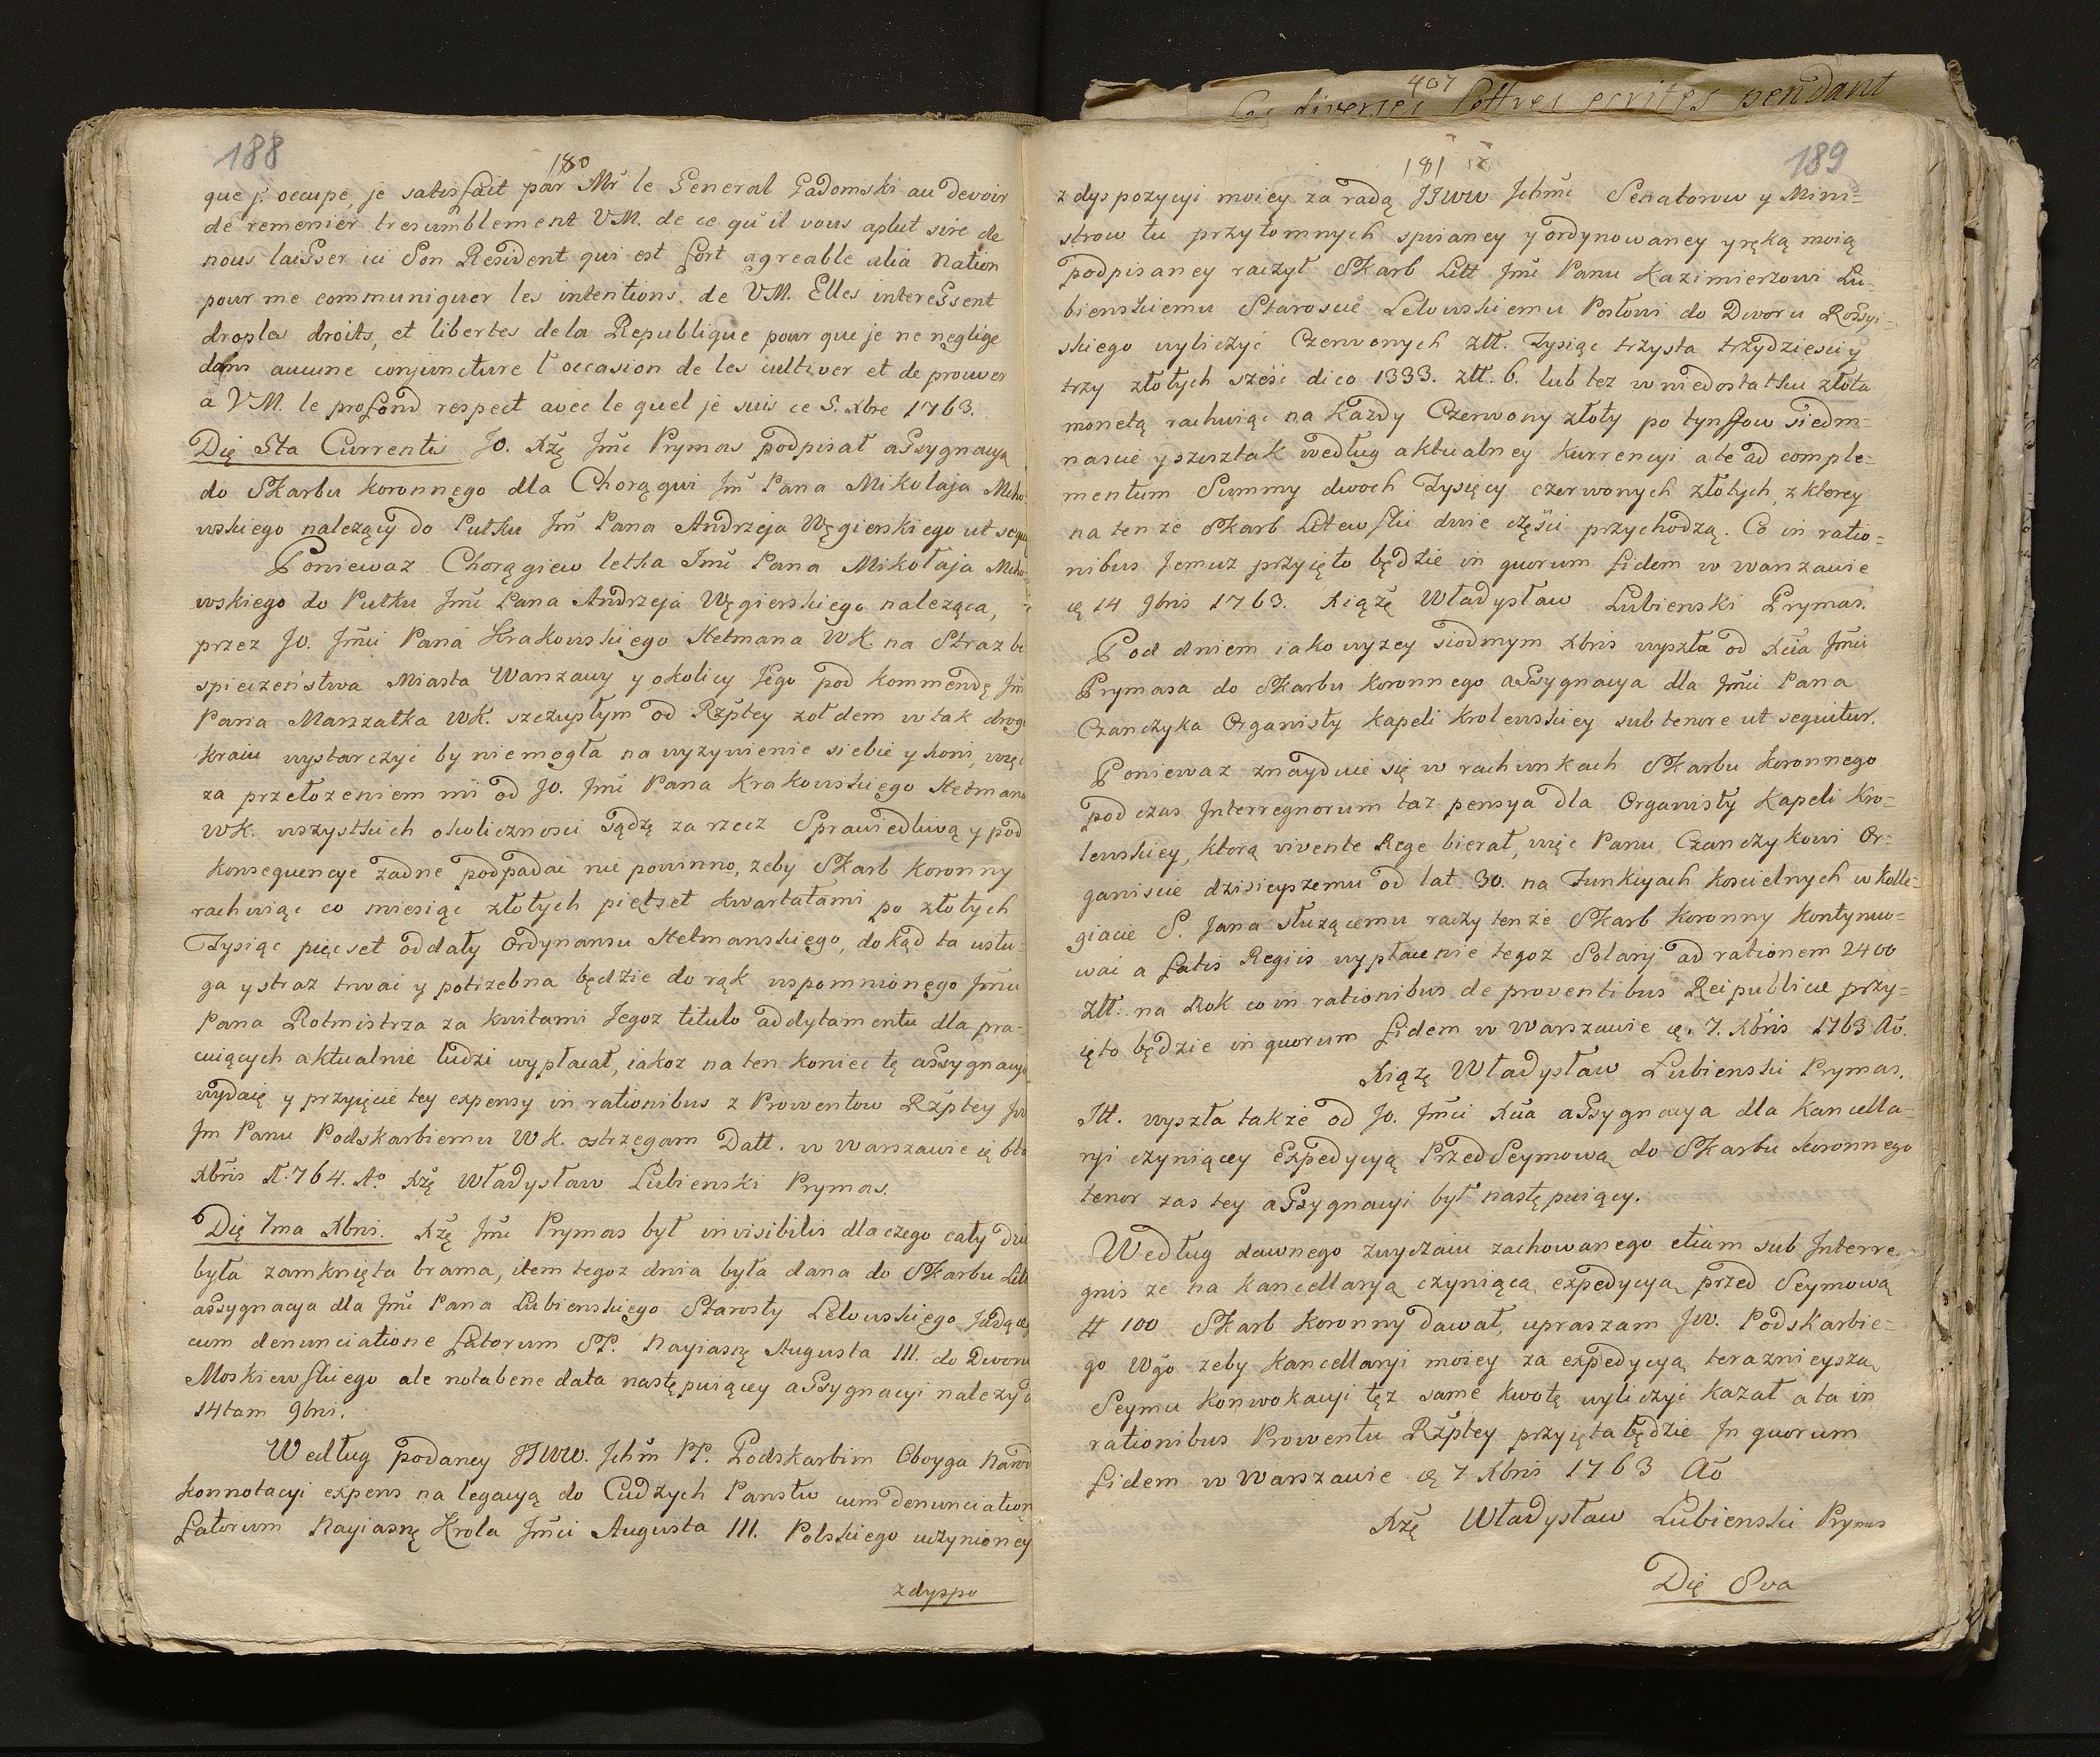 188
180
que j. occupe, je satisfait par Mr le General Gadomski au devoir
de remenier tresumblement V M. de ce qu'il vous aplut sire de
nous laisser ici Son Resident qui est fort agreable alia Nation
pour me communiquer les intentions de V M. Elles interessent
droples droits, et libertes de la Republique pour que je ne neglige
dans aucune conjuncture l'occasion de les cultiver et de prouver
a V M. le profond respect avec le quel je suis ce 5. Xbre 1763.
Dię 5ta Currentis Jo. Xżę Jmć Prymas podpisał assygnacyą
do Skarbu Koronnego dla Chorągwi Jm Pana Mikołaja
wskiego nalezący do Pułku Jm Pana Andrzeja Węgierskiego ut
Poniewaz Chorągiew letka Jmć Pana Mikołaja
wskiego do Pułku Jmć Pana Andrzeja Węgierskiego naleząca,
przez Jo. Jmći Pana Krakowskiego Hetmana WK na Straz
spieczeństwa Miasta Warszawy y okolicy Jego pod kommendę
Pana Marszałka WK. szczupłym od Rzptey zołdem w tak
kraiu wystarczyć by niemogła na wyzywienie siebie y koni,
za przełozeniem mi od Jo. Jmć Pana Krakowskiego Hetmana
WK. wszystkich okolicznosci sądzę za rzecz Sprawiedliwą y pod
konsequencye zadne podpadac nie powinno, zeby Skarb Koronny
rachuiąc co miesiąc złotych pięćset kwartałami po złotych
Tysiąc pięcset oddaty Ordynansu Hetmanskiego, dokąd ta usłu=
ga y straz trwać y potrzebna będzie do rąk wspomnionego Jmći
Pana Rotmistrza za kwitami Jegoz titulo addytamentu dla pra=
cuiących aktualnie ludzi wypłacał, iakoz na ten koniec tę assygnacyą
wydaię y przyięcie tey expensy in rationibus z Prowentow Rzptey
Jm Panu Podskarbiemu WK. ostrzegam Datt. w Warszawie
Xbris 1764. Ao. Xżę Władysław Lubienski Prymas.
Dię 7ma Xbris. Xżę Jmć Prymas był invisibilis dlaczego cały
była zamknięta brama, item tegoz dnia była dana do Skarbu
assygnacya dla Jmć Pana Lubienskiego Starosty Lelowskiego
cum denunciatione Fatorum SP. Nayiasnę Augusta III. do Dworu
Moskiewskiego ale notabene data następuiącey assygnacyi nalezy
14tam 9bris.
Według podaney JJWW. Ichm PP. Podskarbim Oboyga
konnotacyi expens na legacyą do Cudzych Panstw cum denunciation
Fatorum Nayiasnę Krola Jmći Augusta III. Polskiego uczynioney
zdyspo
407
Les diverses lettres ecrites pendant
181
189
z dyspozycyi moiey za radą JJWW Ichmć Senatorow y Mini=
strow tu przytomnych spisaney y ordynowaney y ręką moią
podpisaney raczył Skarb Litt Jmć Panu Kazimierzowi Lu=
bienskiemu Staroscie Lelowskiemu Posłowi do Dworu Rossyi=
skiego wyliczyć Czerwonych złt. Tysiąc trzysta trzydziesci y
trzy złotych szesć dico 1333. złt. 6. lub tez w niedostatku złota
monetą rachuiąc na Kazdy Czerwony złoty po tynffow siedm=
nascie y szusztak według aktualney kurrencyi a te ad comple=
mentum Summy dwoch Tysięcy czerwonych złotych, z ktorey
na tenze Skarb Litewski dwie części przychodzą. Co in ratio=
nibus Jemuz przyięto będzie in quorum fidem w Warszawie
14 9bris 1763. Xiążę Władysław Lubienski Prymas.
Pod dniem iako wyzey siodmym Xbris wyszła od Xcia Jmći
Prymasa do Skarbu Koronnego assygnacya dla Jmći Pana
Czanczyka Organisty Kapeli Krolewskiey sub tenore ut sequitur.
Poniewaz znayduie się w rachunkach Skarbu Koronnego
podczas Interregnorum taz pensya dla Organisty Kapeli Kro=
lewskiey, ktorą vivente Rege bierał, więc Panu Czanczykowi Or=
ganiscie dzisieyszemu od lat 30. na Funkcyach koscielnych w Kolle=
giacie S. Jana słuzącemu raczy tenże Skarb Koronny kontynuo=
wać a Fatis Regiis wypłacenie tegoz Solarij ad rationem 2400
złt. na Rok co in rationibus de proventibus Reipublicæ przy=
ięto będzie in quorum fidem w Warszawie 7. Xbris 1763 Ao.
Xiążę Władysław Lubienski Prymas.
Itt. wyszła takze od Jo. Jmći Xcia assygnacya dla Kancella=
ryi czyniącey Expedycyą PrzedSeymową do Skarbu Koronnego
tenor zas tey assygnacyi był następuiący.
Według dawnego zwyczaiu zachowanego etiam sub Interre=
gnis ze na Kancellaryą czyniącą expedycyą przed Seymową
# 100 Skarb Koronny dawał, upraszam Jw. Podskarbie=
go Wgo zeby Kancellaryi moiey za expedycyą teraznieyszą
Seymu Konwokacyi tęz same kwotę wyliczyć kazał a ta in
rationibus Prowentu Rzptey przyięta będzie In quorum
fidem w Warszawie 7 Xbris 1763 Ao
Xżę Władysław Lubienski Prymas
Dię 8va